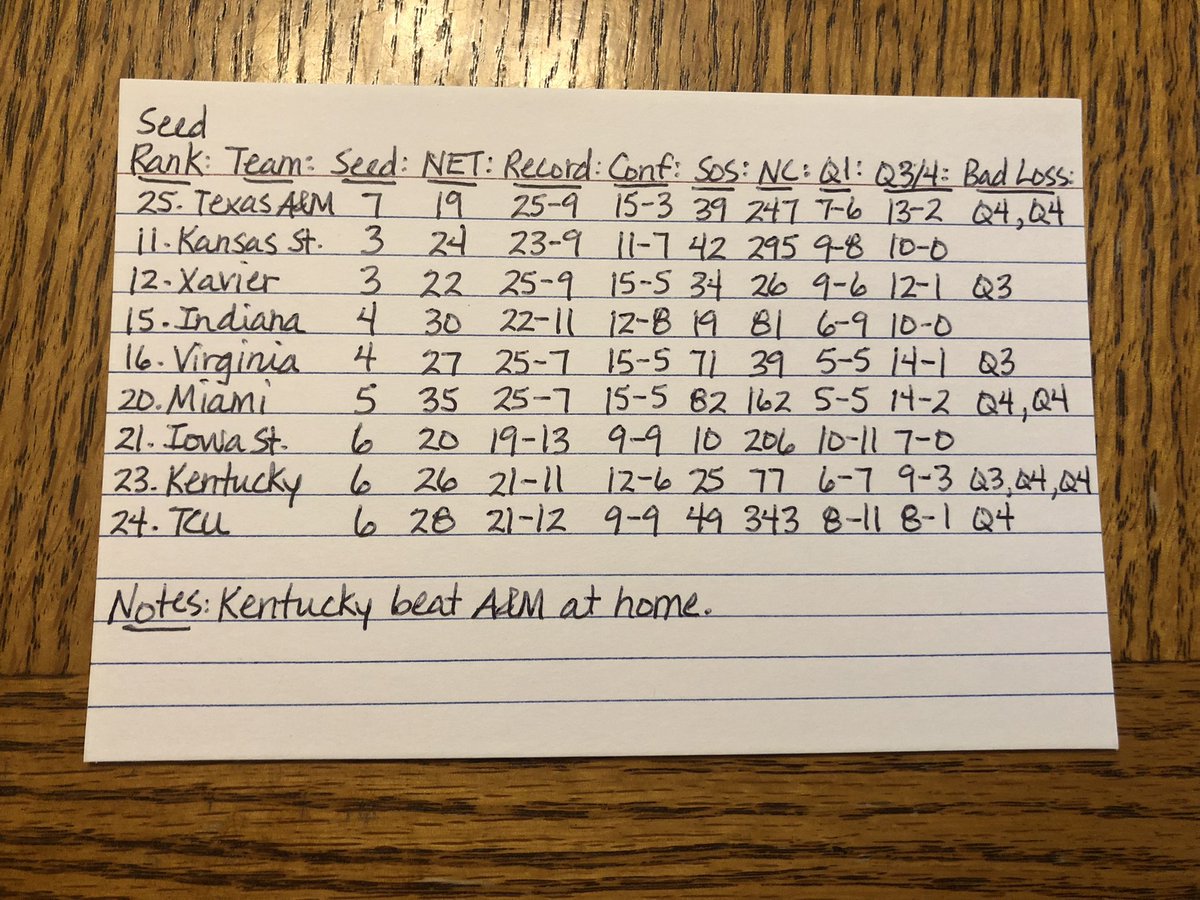 Seed
Rank: Team: Seed: NET: Record: Conf: SOS: NC: Q1: Q3/4: Bad Loss:
25. Texas A&M 7 19 25-9 15-3 39 247 7-6 13-2 Q4, Q4
11. Kansas St. 3 24 23-9 11-7 42 295 9-8 10-0
12. Xavier 3 22 25-9 15-5 34 26 9-6 12-1 Q3
15. Indiana 4 30 22-11 12-8 19 81 6-9 10-0
16. Virginia 4 27 25-7 15-5 71 39 5-5 14-1 Q3
20. Miami 5 35 25-7 15-5 82 162 5-5 14-2 Q4, Q4
21. Iowa St. 6 20 19-13 9-9 10 206 10-11 7-0
23. Kentucky 6 26 21-11 12-6 25 77 6-7 9-3 Q3, Q4, Q4
24. TCU 6 28 21-12 9-9 49 343 8-11 8-1 Q4
Notes: Kentucky beat A&M at home.